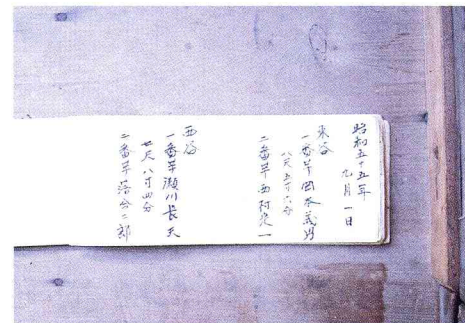 昭和五十五年
九月一日
東谷
一番竿岡本義男
八尺五寸六分
二番竿西村定一
西谷
一番竿瀬川長天
七尺八寸四分
二番竿落合二郎